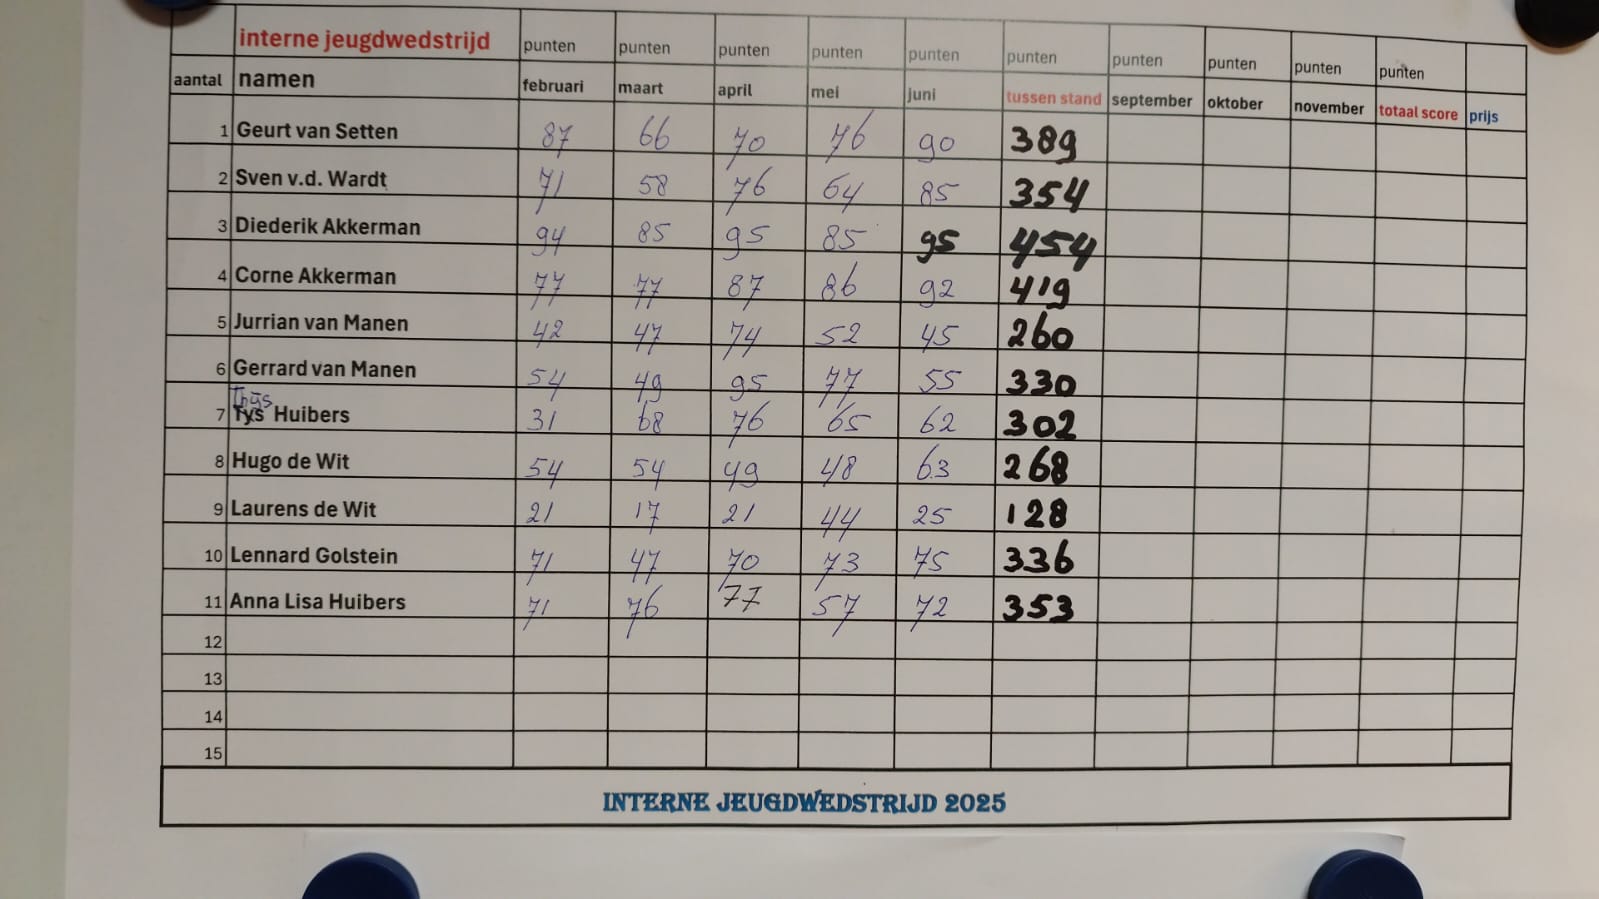 interne jeugdwedstrijd punten punten punten punten punten punten punten punten punten punten
aantal namen februari maart april mei juni tussen stand september oktober november totaal score prijs
1 Geurt van Setten 87 66 70 76 90 389
2 Sven v.d. Wardt 71 58 76 64 85 354
3 Diederik Akkerman 94 85 95 85 95 454
4 Corne Akkerman 77 77 87 86 92 419
5 Jurrian van Manen 42 47 74 52 45 260
6 Gerrard van Manen 54 49 95 77 55 330
Thijs
7 Tys Huibers 31 68 76 65 62 302
8 Hugo de Wit 54 54 49 48 63 268
9 Laurens de Wit 21 17 21 44 25 128
10 Lennard Golstein 71 47 70 73 75 336
11 Anna Lisa Huibers 71 76 77 57 72 353
12
13
14
15
INTERNE JEUGDWEDSTRIJD 2025